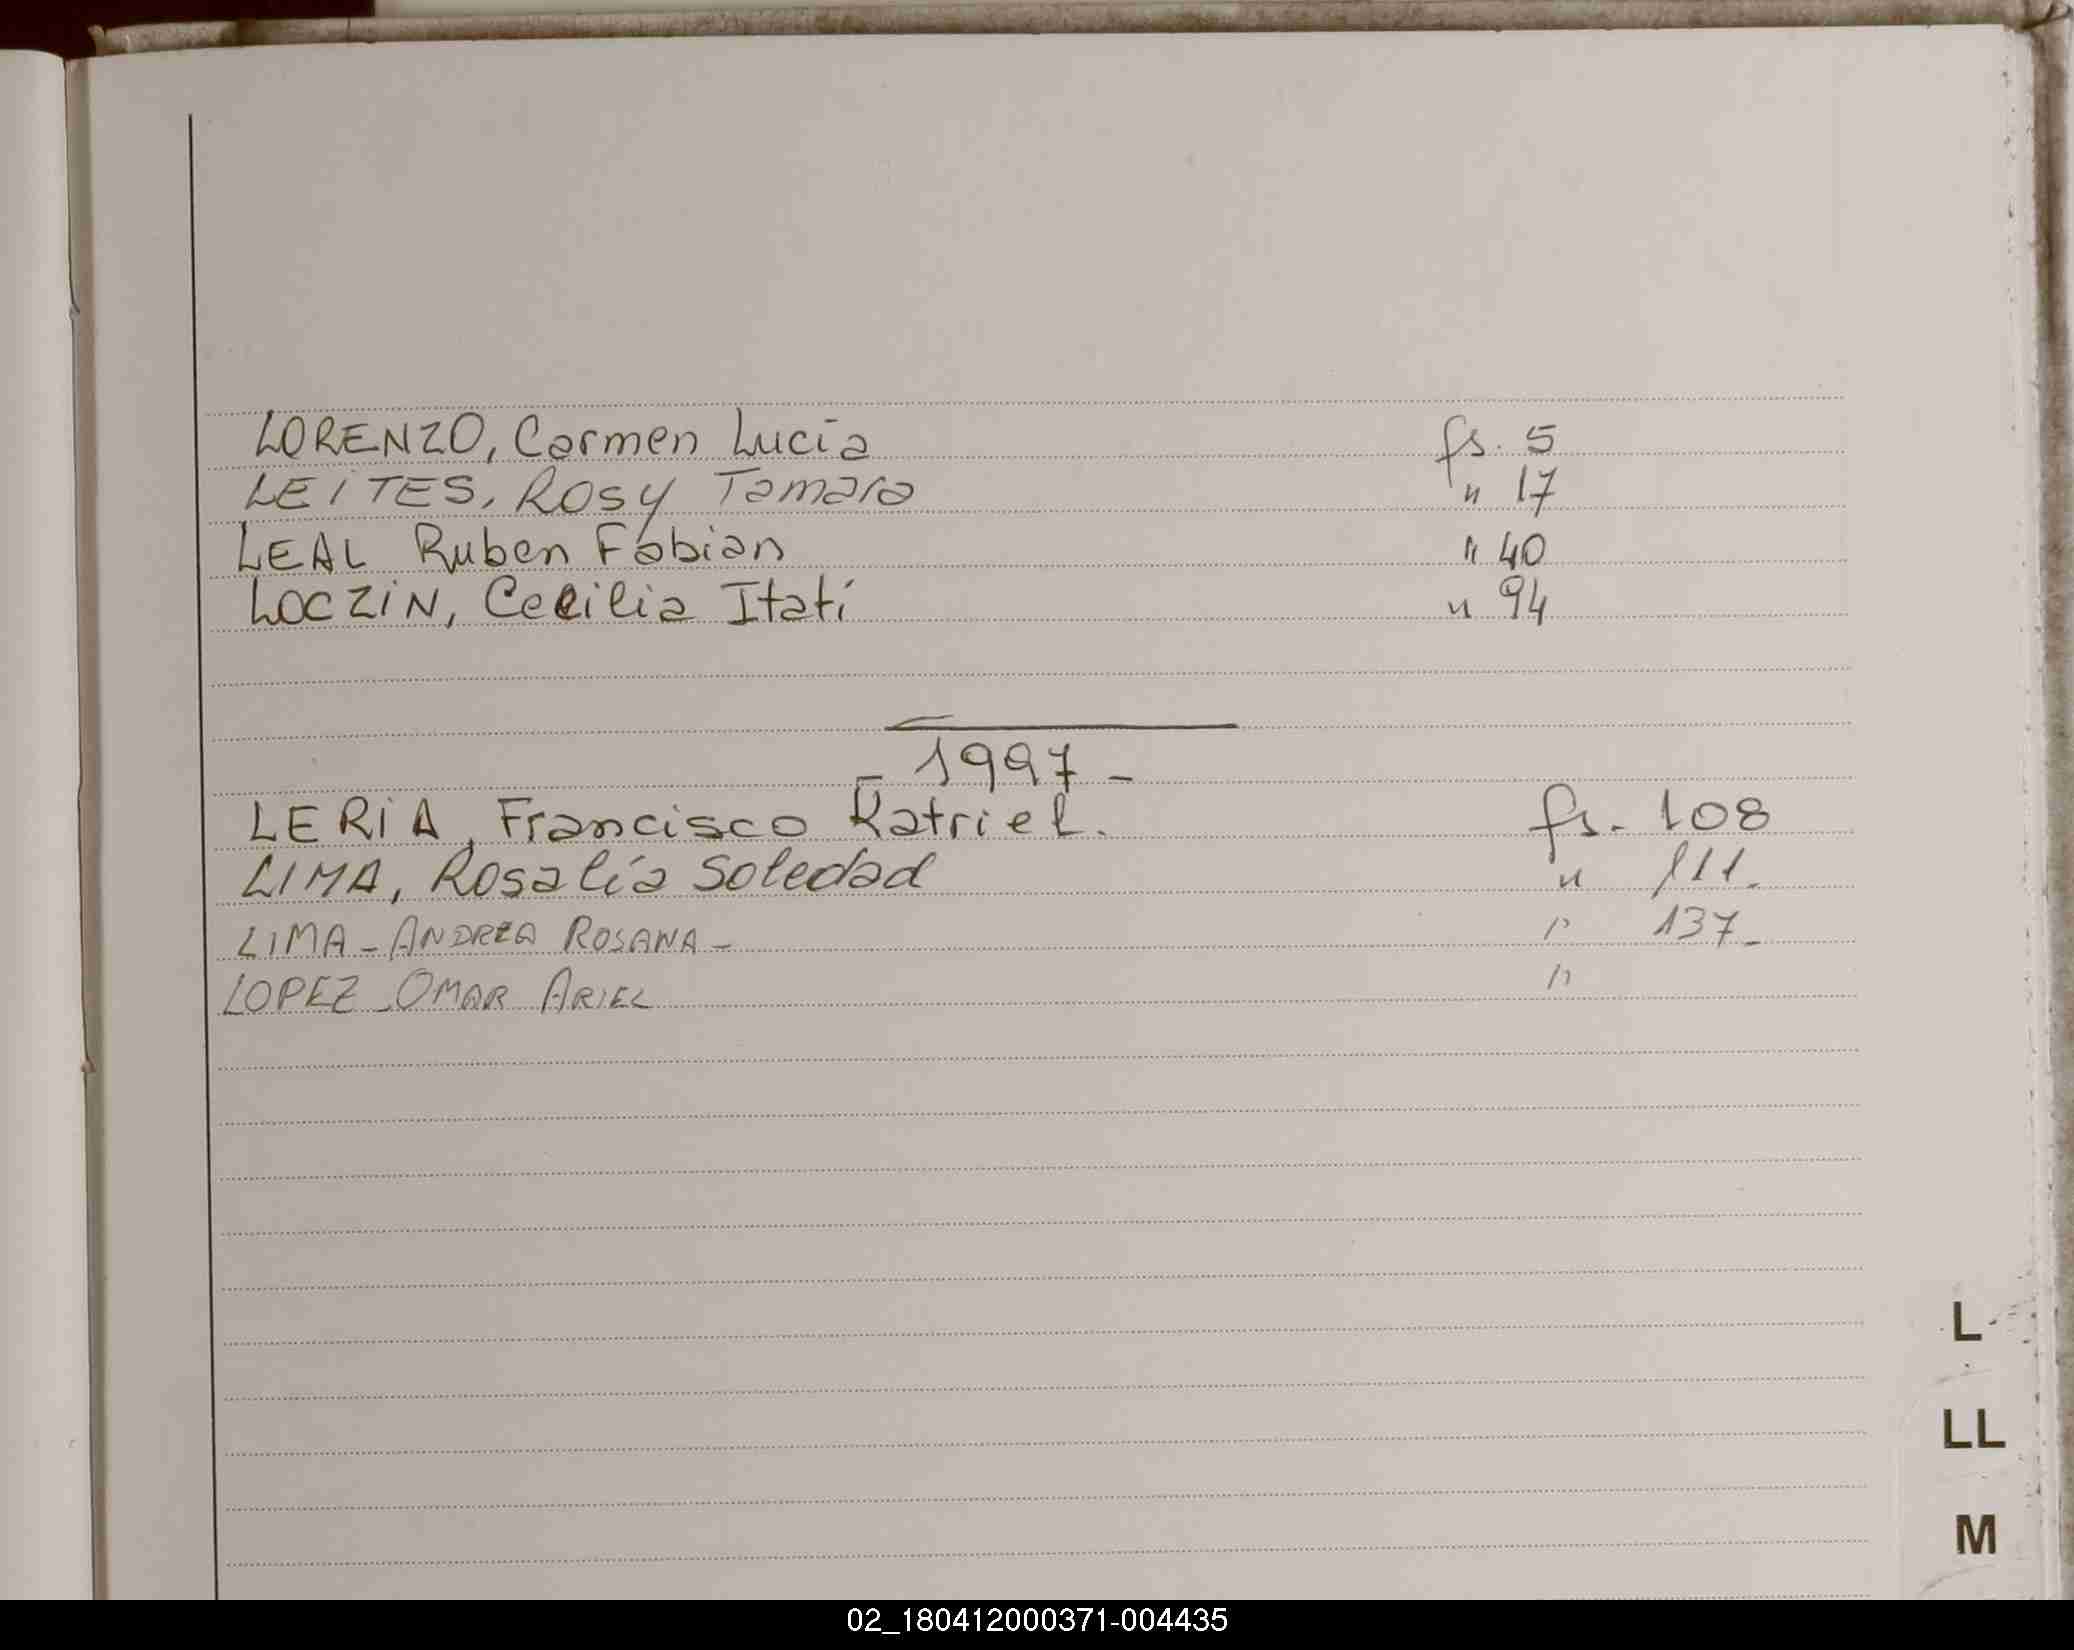 LORENZO, Carmen Lucia fs. 5
LEITES, Rosy Tamara " 17
LEAL Ruben Fabian " 40
LOCZIN, Cecilia Itatí " 94
- 1997 -
LERIA, Francisco Katriel. fs. 108
LIMA, Rosalía Soledad " 111.
LIMA - ANDREA ROSANA - " 137.
LOPEZ - OMAR ARIEL "
L
LL
M
02_180412000371-004435